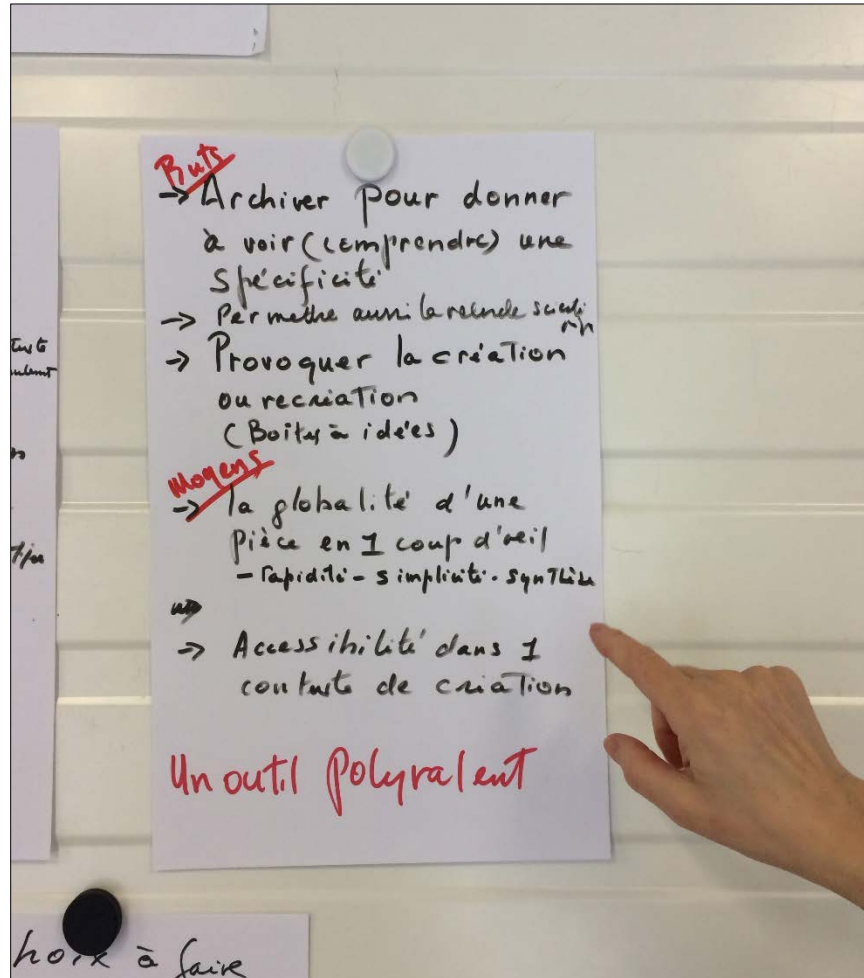 Buts
→ Archiver pour donner
à voir (comprendre) une
spécificité
→ Permettre aussi la
→ Provoquer la création
ou recréation
(Boites à idées)
Moyens
→ la globalité d'une
pièce en 1 coup d'œil
- rapidité - simplicité - synthèse
→ Accessibilité dans 1
contexte de création
Un outil polyvalent
à faire